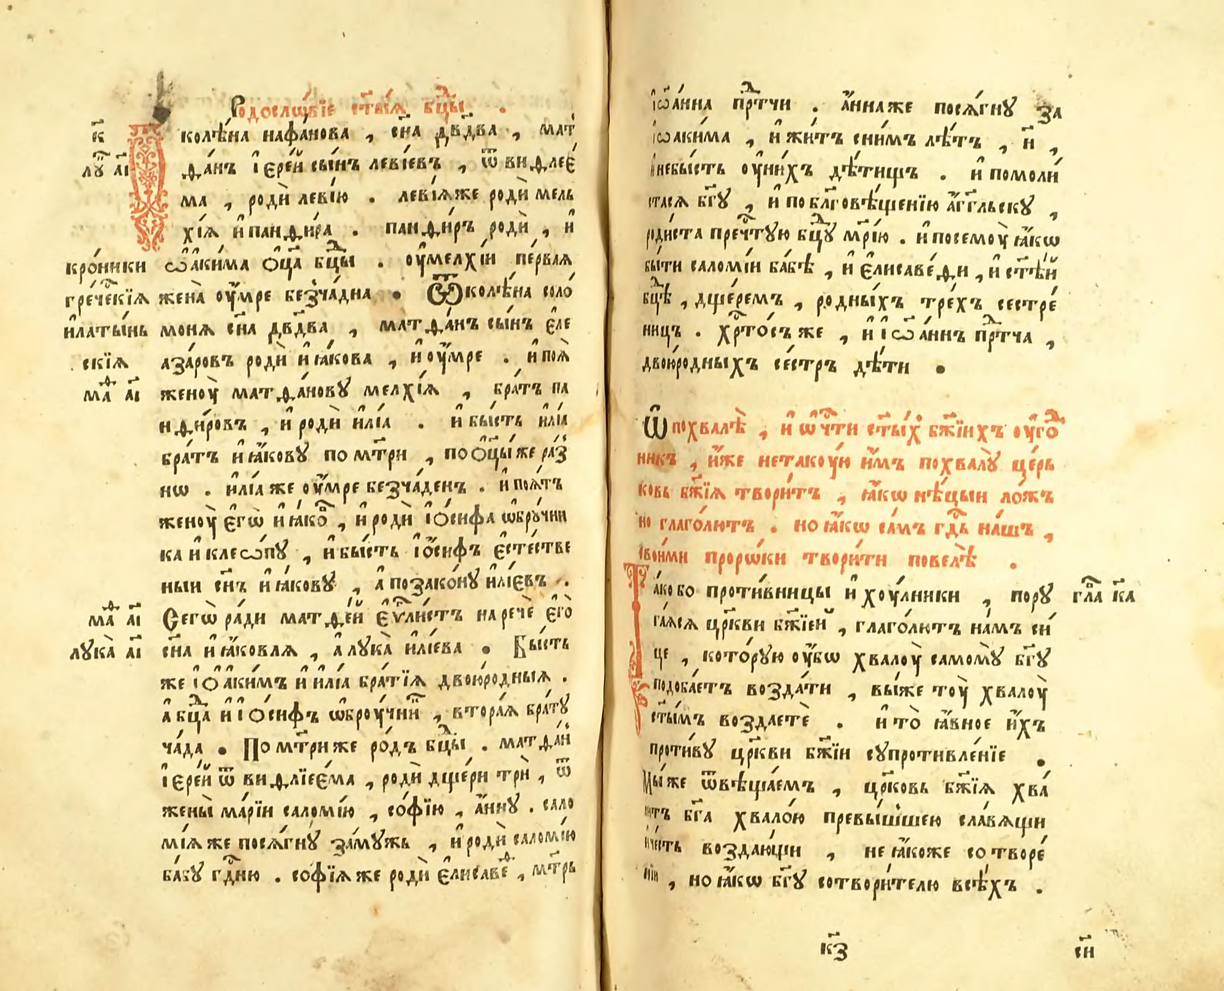 Родослѡвїе ст҃ыѧ бц҃ы .
к҃
Ѿ колѣна нафанова , сн҃а дв҃два , мат
лꙋ҃ г҃і
ѳанъ їерей сынъ левїевъ , ѿ виѳлее
ма , роди левїю . левїѧже роди мель
хїѧ и панѳира . панѳиръ роди , и
кроники
ѡакима ѻц҃а бц҃ы . оумелхїи первая
греческїѧ
жена оумре безчадна . Ѿ колѣна соло
илатынь
монѧ сн҃а дв҃два , матѳанъ сынъ еле
скїѧ
азаровъ роди иꙗкова , и оумре . и поꙗ
мѳ҃ а҃і
женоу матѳановꙋ мелхїѧ , братъ па
нѳировъ , и роди илїа . и бысть илїа
братъ иꙗковꙋ по мт҃ри , по ѻц҃ы же раз
нѡ . илїа же оумре безчаденъ . и поѧтъ
женоу егѡ иꙗко , и роди їѻсифа ѡбрꙋчни
ка и клеѡпꙋ , и бысть їѻсифъ естестве
ныи сн҃ъ иꙗковꙋ , а позаконꙋ илїевъ .
мѳ҃ а҃і
Сегѡ ради матѳей еѵ҃листъ нарече его
лꙋка а҃і
сн҃а иꙗковлѧ , а лꙋка илїева . Бысть
же їѻакимъ и илїа братїѧ двоюродныѧ .
а бц҃а и їѻсифъ ѡброучни , вторая братꙋ
чада . По мт҃риже родъ бц҃ы . матѳан
їерей ѿ виѳлїеема , роди дщери три , ѿ
жены марїи саломїю , софїю , аннꙋ . сало
мїѧже посѧгнꙋ замꙋжь , и роди саломїю
бабꙋ гд҃ню . софїѧже роди елисаве , мт҃рь
їѡанна прⷣтчи . аннаже посѧгнꙋ за
їѡакима , и житъ снимъ лѣтъ , н҃ ,
инебысть оунихъ дѣтищъ . и помоли
стасѧ бг҃ꙋ , и по блг҃овѣщенїю аг҃гльскꙋ ,
родиста преч҃тꙋю бц҃ꙋ мр҃їю . и посемоу ꙗкѡ
быти саломїи бабѣ , и елисавеѳи , и ст҃ѣй
бц҃ѣ , дщеремъ , родныхъ трехъ сестре
ницъ . хр҃тосъ же , и їѡаннъ прⷣтча ,
двоюродныхъ сестръ дѣти .
Ѿ похвалѣ , и ѡ ч҃ти ст҃ыхъ бж҃їихъ оуго
никъ , иже нетакоую имъ похвалꙋ церь
ковь бж҃їѧ творитъ , ꙗкѡ нѣцыи ложъ
но глаголютъ . но ꙗкѡ самъ гд҃ь нашъ ,
своими пророки творити повелѣ .
Такобо противницы и хоулники , порꙋ
гл҃а к҃а
гаѧсѧ цр҃кви бж҃їей , глаголитъ намъ си
це , которꙋю оубѡ хвалоу самомꙋ бг҃ꙋ
подобаетъ воздати , выже тоу хвалоу
ст҃ымъ воздаете . и то ꙗвное ихъ
противꙋ цр҃кви бж҃їи сꙋпротивленїе .
Мы же ѿвѣщаемъ , цр҃ковь бж҃їѧ хва
литъ бг҃а хвалою превышшею славѧщи
и честь воздающи , не ꙗкоже сотворе
нїи , но ꙗкѡ бг҃ꙋ сотворителю всѣхъ .
к҃з
сн҃